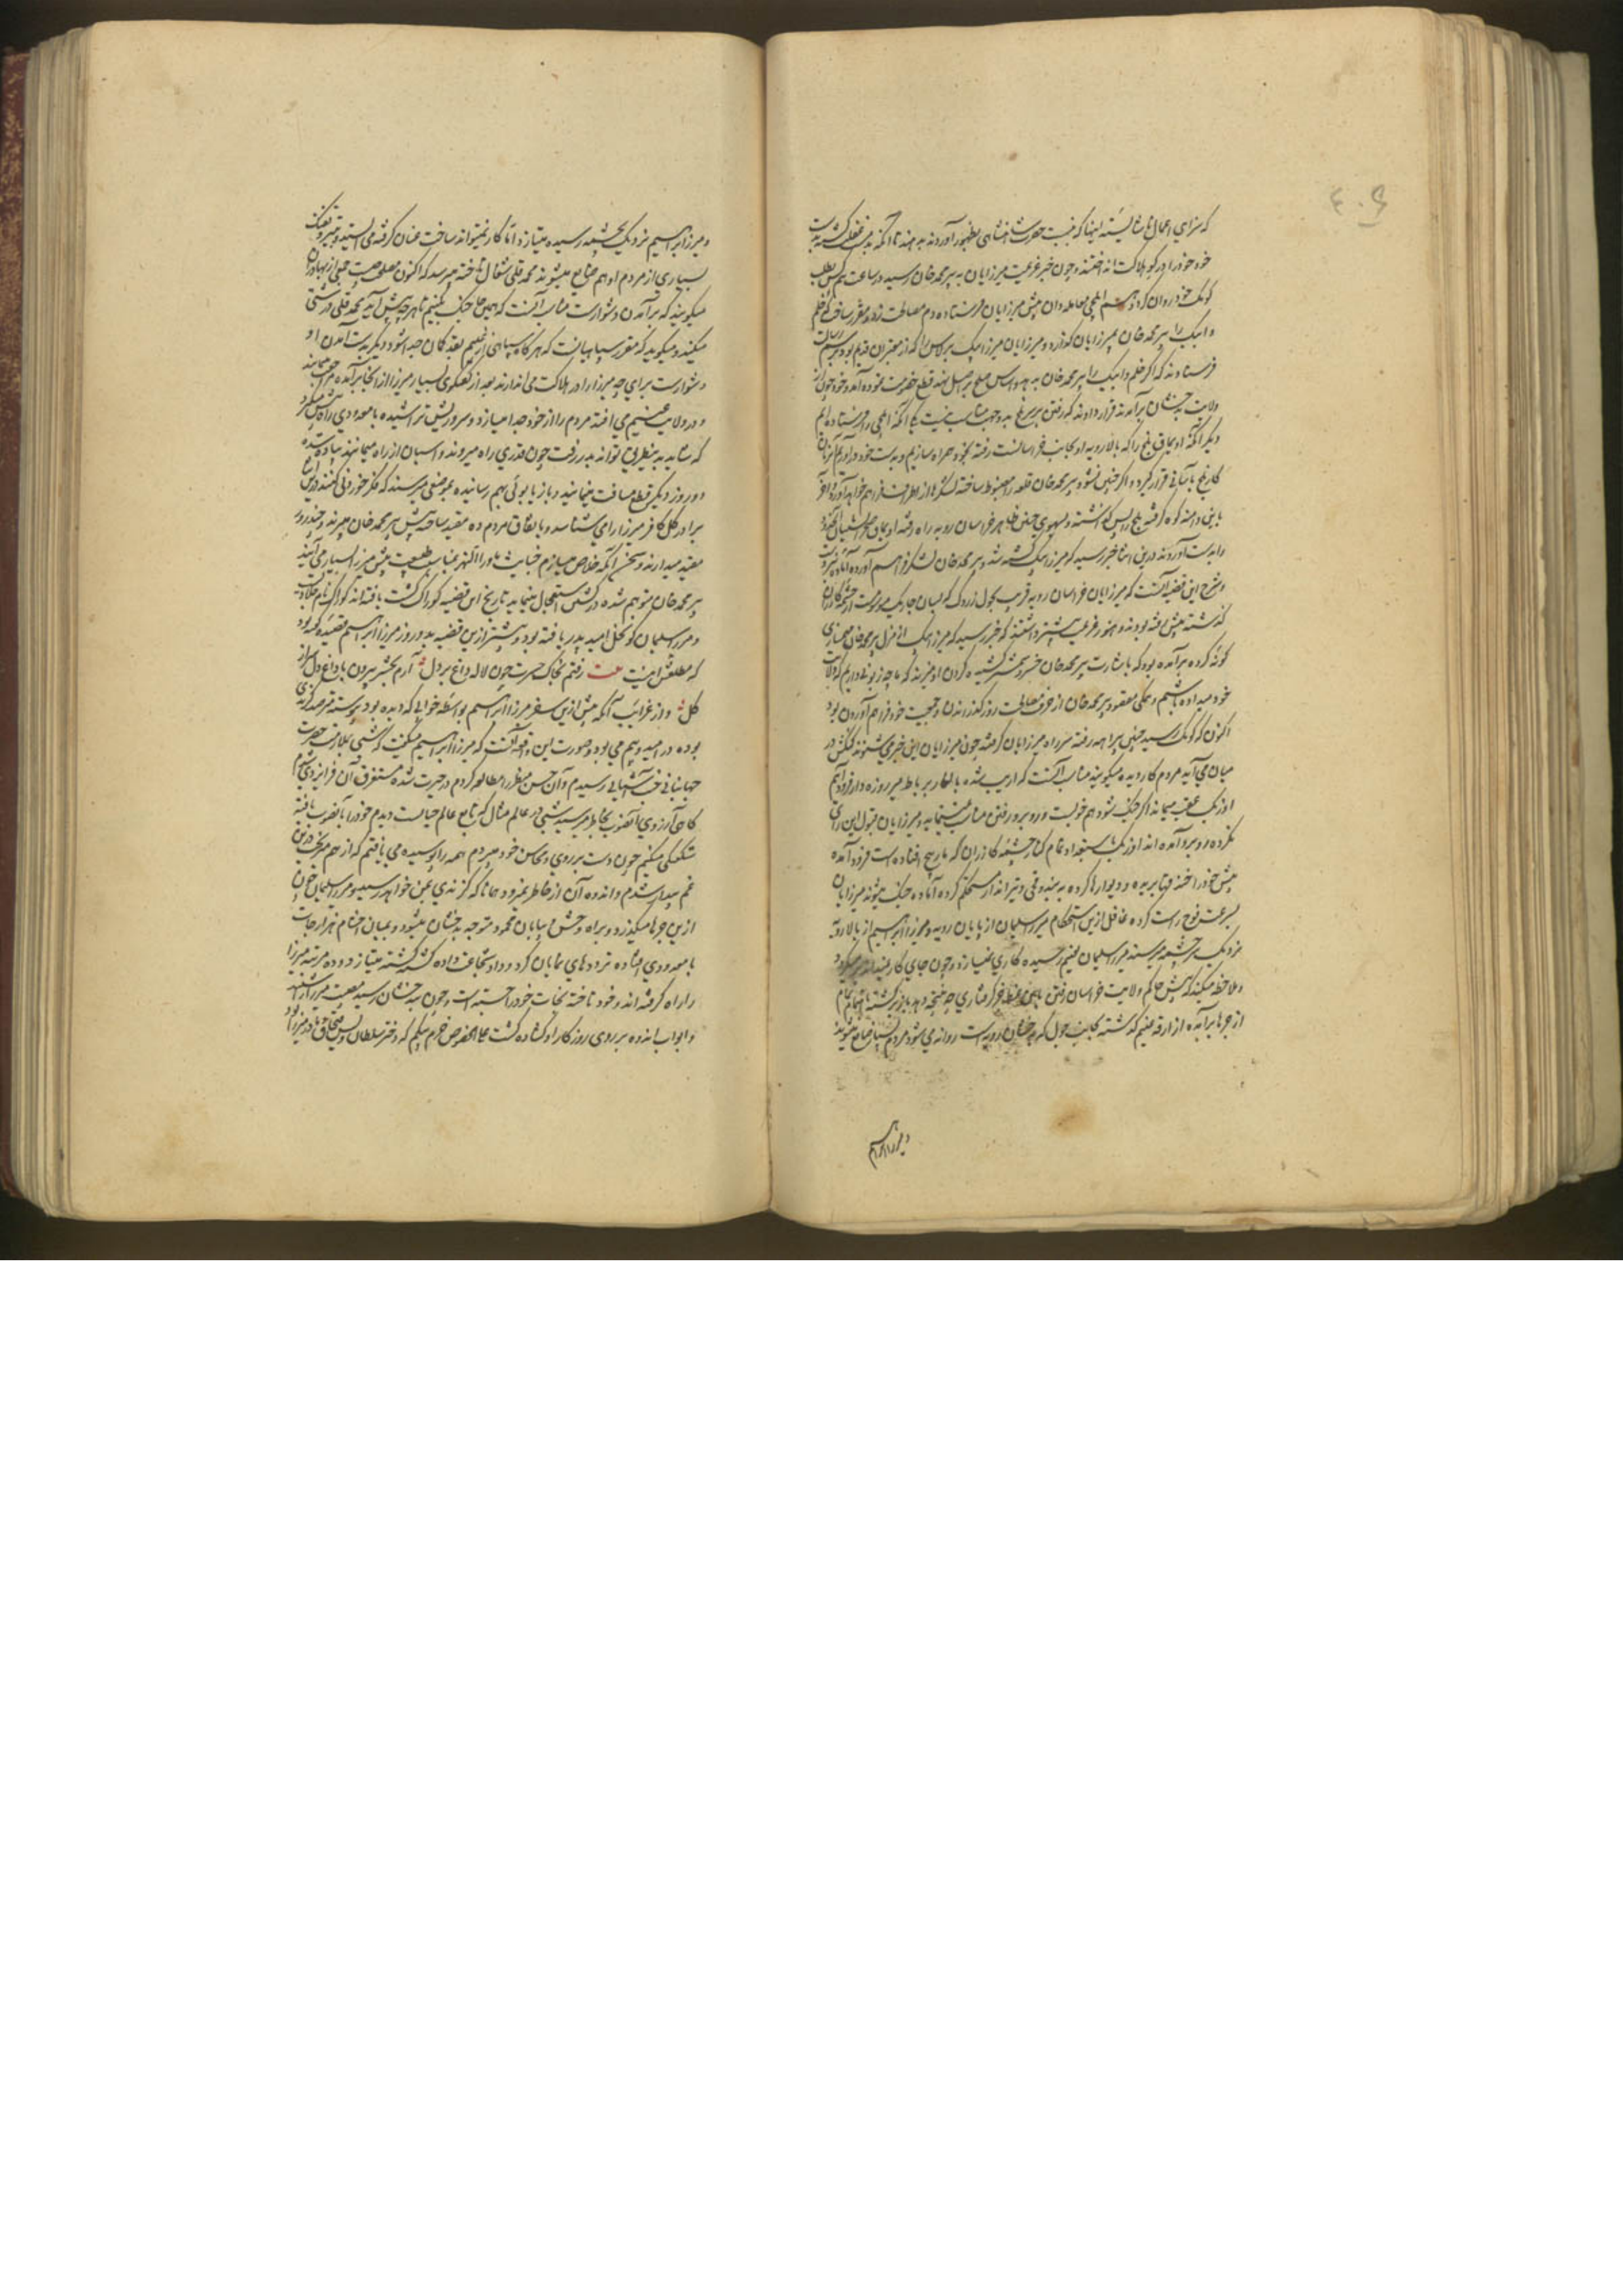 ۴۰۶
که سزای اعمال ناشایسته اینها که نسبت حضرت شاهنشاهی بظهور آورده‌اند بدهند تا آنکه
خود خود را در کو هلاکت انداختند و چون خبر عزیمت میرزایان به پیر محمد خان رسید در ساعت کس بطلب
کومک خود روان کرد و هم ایلچی معامله دان پیش میرزایان فرستاده دم مصالحت زد و مقرر ساخت که خلم
و ایبک را پیر محمد خان بمیرزایان گذارد و میرزایان میرزا بیک برلاس را که از معتبران قدیم بود برسم رسالت
فرستادند که اگر خلم و ایبک را پیر محمد خان بدهد اساس صلح بر اصل نهد قطع خصومت نموده آید و خود چون از
ولایت بدخشان برآمدند قرار دادند که رفتن بر سر بلخ بدو جهت مناسب نیست یکی آنکه ایلچی را فرستاده‌ایم
دیگر آنکه اویماق بلخ را که بالا رویه او بجانب خراسانست رفته بخود همراه سازیم و بدست خود درآوریم آن زمان
کار بلخ بآسانی قرار گیرد و اگر چنین نشود پیر محمد خان قلعه را مضبوط ساخته لشکرها از اطراف فراهم خواهد آورد و آخر
باین دامنه کوه گرفته بلخ را پس گذاشته و پهلوی چپ ظاهر خراسان رویه راه رفته اویماق
را بدست آوردند درین اثنا خبر رسید که میرزا بیک کشته شد و پیر محمد خان لشکر فراهم آورده آماده نبردست
و شرح این قضیه آنست که میرزایان خراسان رویه قریب بچول زردک که لبان جاریک موسومست از چشمه گازران
گذشته پیش رفته بودند و هنوز عزیمت پیشتر داشتند که خبر رسید که میرزا بیک از منزل پیر محمد خان
گونه کرده برآمده بود که باشارت پیر محمد خان خسرو شمشیر کشیده گردن او میزند که ما چه زبونی داریم که ولایت
خود میداده باشیم و همگی مقصود پیر محمد خان از حرف مصالحت روز گذرانیدن و جمعیت خود فراهم آوردن بود
اکنون که کومک رسید چنین بیراهه رفته سر راه میرزایان گرفته چون میرزایان این خبر می‌شنوند کنگش در
میان می‌آید مردم کار دیده میگویند مناسب آنست که اریب شده بالغار بر رباط میر روزه دار فرود آیم
اوزبک عقب میماند اگر جنگ شود هم خوبست و روبرو رفتن مناسب نمینماید و میرزایان قبول این رای
نکرده روبرو آمده‌اند اوزبک باستعداد تمام کنار چشمه گازران که بار پیچ افتاده است فرود آمده
پیش خود را خندق‌ها بریده و دیوارها کرده به بندوقچی و تیرانداز مستحکم کرده آماده جنگ میشوند میرزایان
بسرعت فوج راست کرده غافل ازین استحکام میرزا سلیمان از پایان رویه و میرزا ابراهیم از بالا رویه
نزدیک بر چشمه میرسند میرزا سلیمان بغنیم رسیده کاری نمیسازد و چون جای کار نمیداند برمیگردد
و ملاحظه میکند که پیش حاکم ولایت خراسان رفتن باین وضع جز گرفتاری چه نتیجه دهد باز برگشته باهتمام تمام
از جرها برآمده از اردوی غنیم گذشته بجانب چول که بدخشان رویه است روانه می‌شود مردم بسیار ضایع میشوند
و میرزا ابراهیم
و میرزا ابراهیم نزدیک بچشمه رسیده میتازد اما کار نمیتواند ساخت عنان گرفته می‌ایستد و بتیر و تفنگ
بسیاری از مردم او هم ضایع میشوند محمد قلی شغال تاخته میرسد که اکنون مصلحت چیست جمعی از بهادران
میگویند که برآمدن دشوارست مناسب آنست که همین جا جنگ بکنیم تا هر چه پیش آید محمد قلی درشتی
میکند و میگوید که مقرر سپاهیانست که هرگاه سپاهی از غنیم بقدر کمان جدا شود دیگر بدست آمدن او
دشوارست برای چه میرزا را در هلاکت می‌اندازند بعد از گفتگوی بسیار میرزا از آنجا برآمده
و در ولایت غنیم می‌افتد مردم را از خود جدا میسازد و سر و ریش تراشیده با معدودی راه پیش میگیرد
که شاید به بیطرفی تواند بدر رفت چون قدری راه میروند و اسپان از راه میمانند پیاده شده
دو روز دیگر قطع مسافت مینمایند و باز یابوئی بهم رسانیده بموضعی میرسند که فکر خوردنی کنند درین اثنا
برادر کل کافر میرزا را می‌شناسد و باتفاق مردم ده مقید ساخته پیش پیر محمد خان میبرند و چند روز
مقید میدارند و سخن آنکه خلاص میسازم خباثت ماوراءالنهر بمناسبت طبیعت پیش میرزا بسیار می‌آیند
پیر محمد خان متوهم شده در کشتن استعجال مینماید تاریخ این قضیه کو را کشت یافته‌اند
و میرزا سلیمان کو نخل امید پدر یافته بود و پیشتر ازین قضیه بدو روز میرزا ابراهیم قصیده گفته بود
که مطلعش اینست بیت رفتم بخاک حسرت چون لاله داغ بر دل آرم بحشر بیرون با داغ دل سر از
گل و از غرایب آنکه پیش ازین سفر میرزا ابراهیم بواسطه خوابی که دیده بود پیوسته مترصد گزندی
بوده در امید و بیم می‌بود و صورت این واقعه آنست که میرزا ابراهیم میگفت که شبی بملازمت حضرت
جهانبانی جنت آشیانی رسیدم و آن حسن منظر را مطالعه کردم در حیرت شده مستغرق آن فر ایزدی میشوم
گاهی آرزوی آنصوب بخاطر میرسید شبی در عالم مثال که تابع عالم خیالست دیدم خود را بآنصوب یافته
شگفتگی میکنم چون دست بر روی و محاسن خود میبردم همه را پوسیده می‌یافتم که از هم میریخت درین
غم بیدار شدم و اندوه آن از خاطر نمیرود همانا که گزندی بمن خواهد رسید و میرزا سلیمان چون
ازین جرها میگذرد و براه وخش بیابان محمود متوجه بدخشان میشود و بمیان احشام هزارجات
با معدودی افتاده ترددهای نمایان کرد و داد شجاعت داده کشته کشته میتازد و ده مرتبه میرزا
را راه گرفته‌اند و خود تاخته نجات خود را جسته است و چون به بدخشان رسید
و ابواب اندوه بر روی روزگار او گشاده گشت علی الخصوص خرم بیگم که دختر سلطان ویس قبچاق